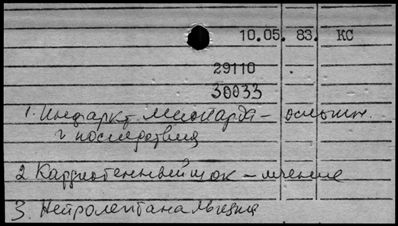 10.05. 83. КС
29110
30033
1. Инфаркт миокарда - осложн.
и последствия
2 Кардиогенный шок - лечение
3. Нейролептанальгезия